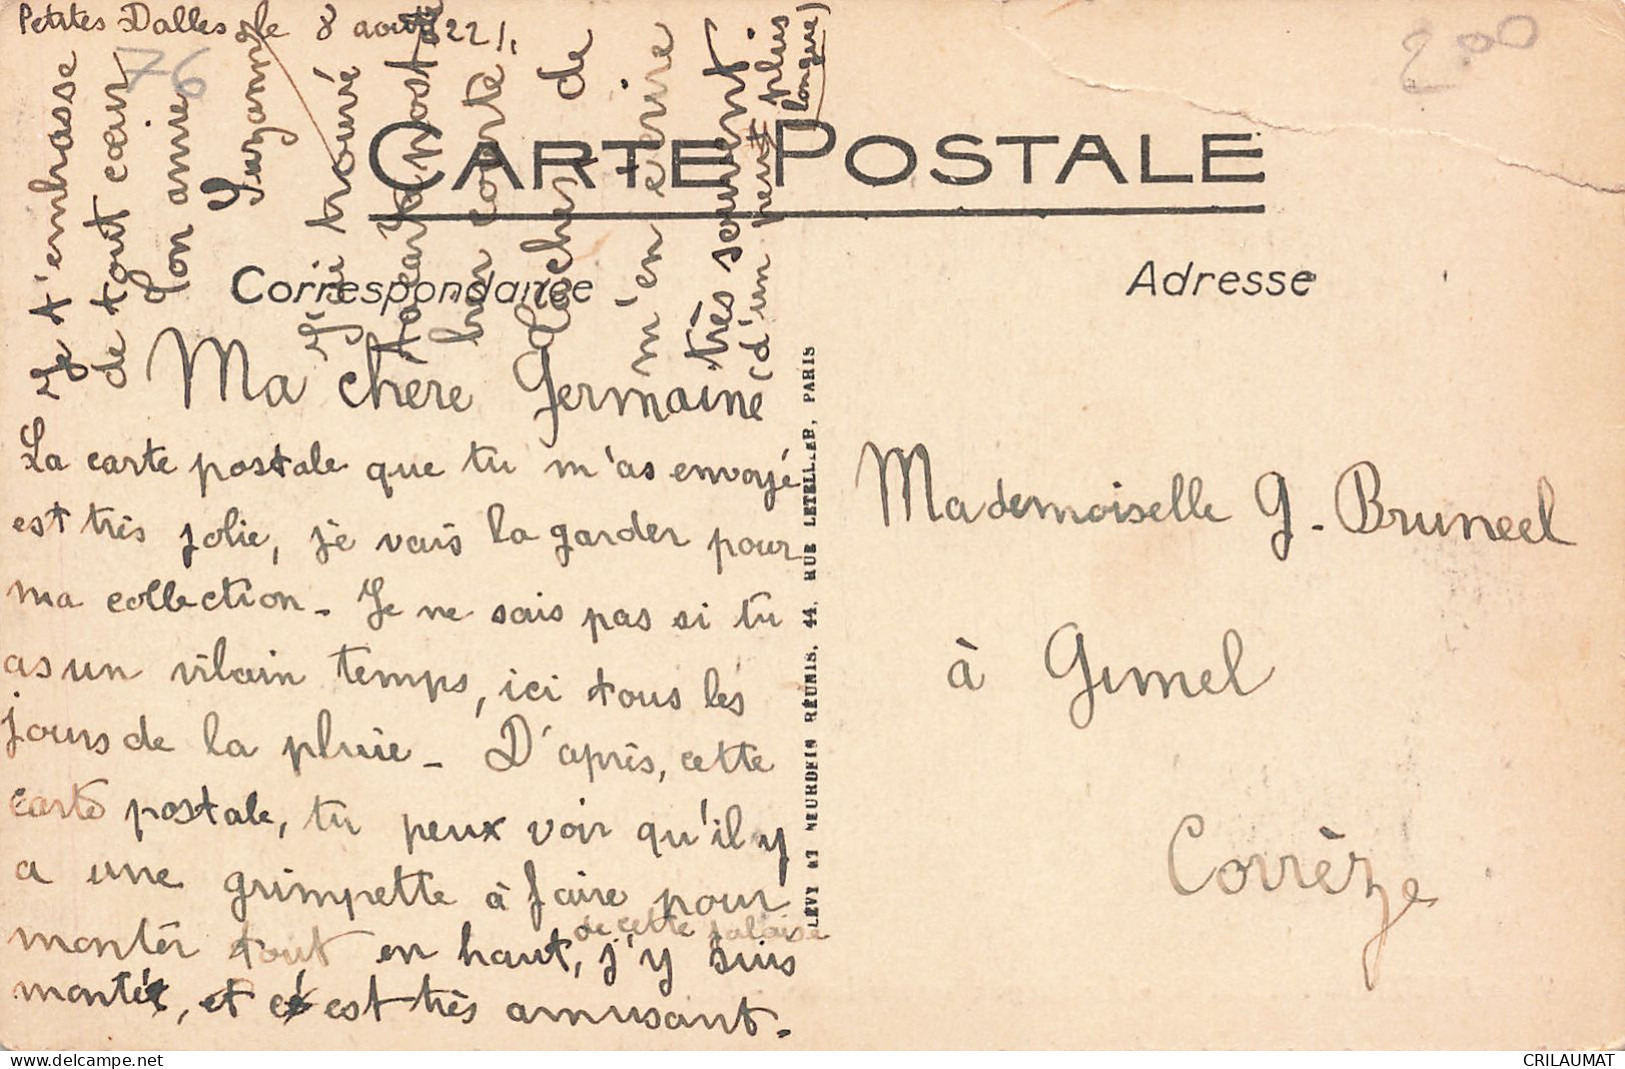 Petites Dalles le 8 août 22
76
200
CARTE POSTALE
Correspondance
Adresse
Ma chère Germaine
La carte postale que tu m'as envoyé
est très jolie, je vais la garder pour
ma collection - Je ne sais pas si tu
as un vilain temps, ici tous les
jours de la pluie - D'après, cette
carte postale, tu peux voir qu'il y
a une grimpette à faire pour
monter tout en haut, de cette falaise j'y suis
monté, et c'est très amusant.
J'ai trouvé
ta carte post
bien courte,
tâches de
m'en écrire
très souvent.
(d'un peu plus
longue)
Je t'embrasse
de tout cœur
Ton amie
Suzanne
LÉVY ET NEURDEIN RÉUNIS, 44, RUE LETELLIER, PARIS
Mademoiselle G. Bruneel
à Gimel
Corrèze
CRILAUMAT